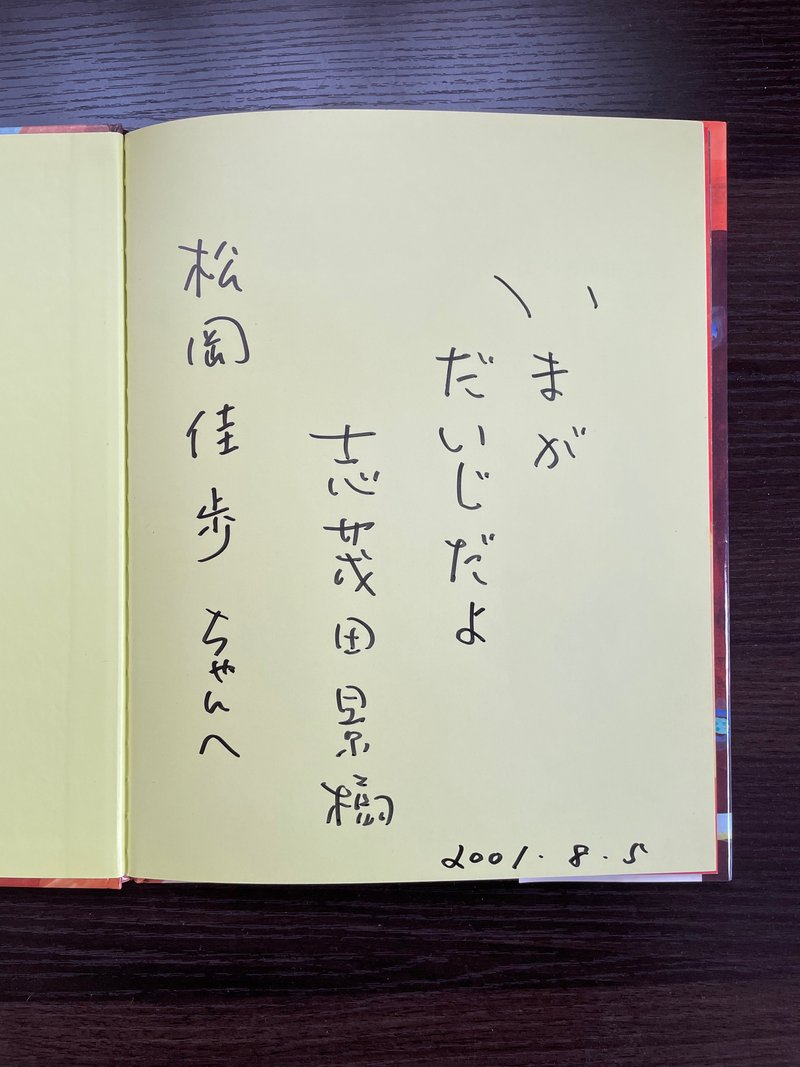 いまが
だいじだよ
志茂田景樹
松岡佳歩ちゃんへ
2001.8.5